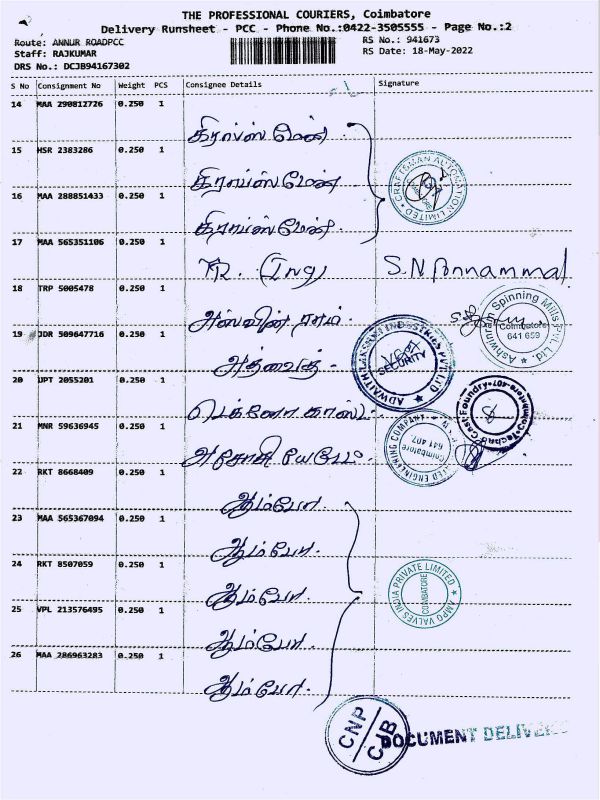 THE PROFESSIONAL COURIERS, Coimbatore
Delivery Runsheet - PCC - Phone No.:0422-3505555 - Page No.:2
Route: ANNUR ROADPCC
RS No.: 941673
Staff: RAJKUMAR
RS Date: 18-May-2022
DRS No.: DCJB94167302
S No Consignment No Weight PCS Consignee Details Signature
14 MAA 290812726 0.250 1
கிராப்ஸ் மேன்
15 HSR 2383286 0.250 1
கிராப்ஸ் மேன்
CRAFTSMAN AUTOMATION LIMITED
16 MAA 288851433 0.250 1
கிராப்ஸ் மேன்
17 MAA 565351106 0.250 1
(Ing) S.N Ponnammal
18 TRP 5005478 0.250 1
அஸ்வின் ராம்
Ashwinram Spinning Mills Pvt. Ltd
Coimbatore
641 659
19 JDR 509647716 0.250 1
அத்வைத்
ADWAITH LAKSHMI INDUSTRIES PVT LTD
SECURITY
20 UPT 2055201 0.250 1
டெக்னோ காஸ்ட்
21 MNR 59636945 0.250 1
ENGINEERING COMPANY
Coimbatore
641 407
22 RKT 8668409 0.250 1
ஆம்போ
23 MAA 565367094 0.250 1
ஆம்போ
24 RKT 8507059 0.250 1
ஆம்போ
AMPO VALVES INDIA PRIVATE LIMITED
COIMBATORE
25 VPL 213576495 0.250 1
ஆம்போ
26 MAA 286963283 0.250 1
ஆம்போ
CNP
CJB
DOCUMENT DELIVER